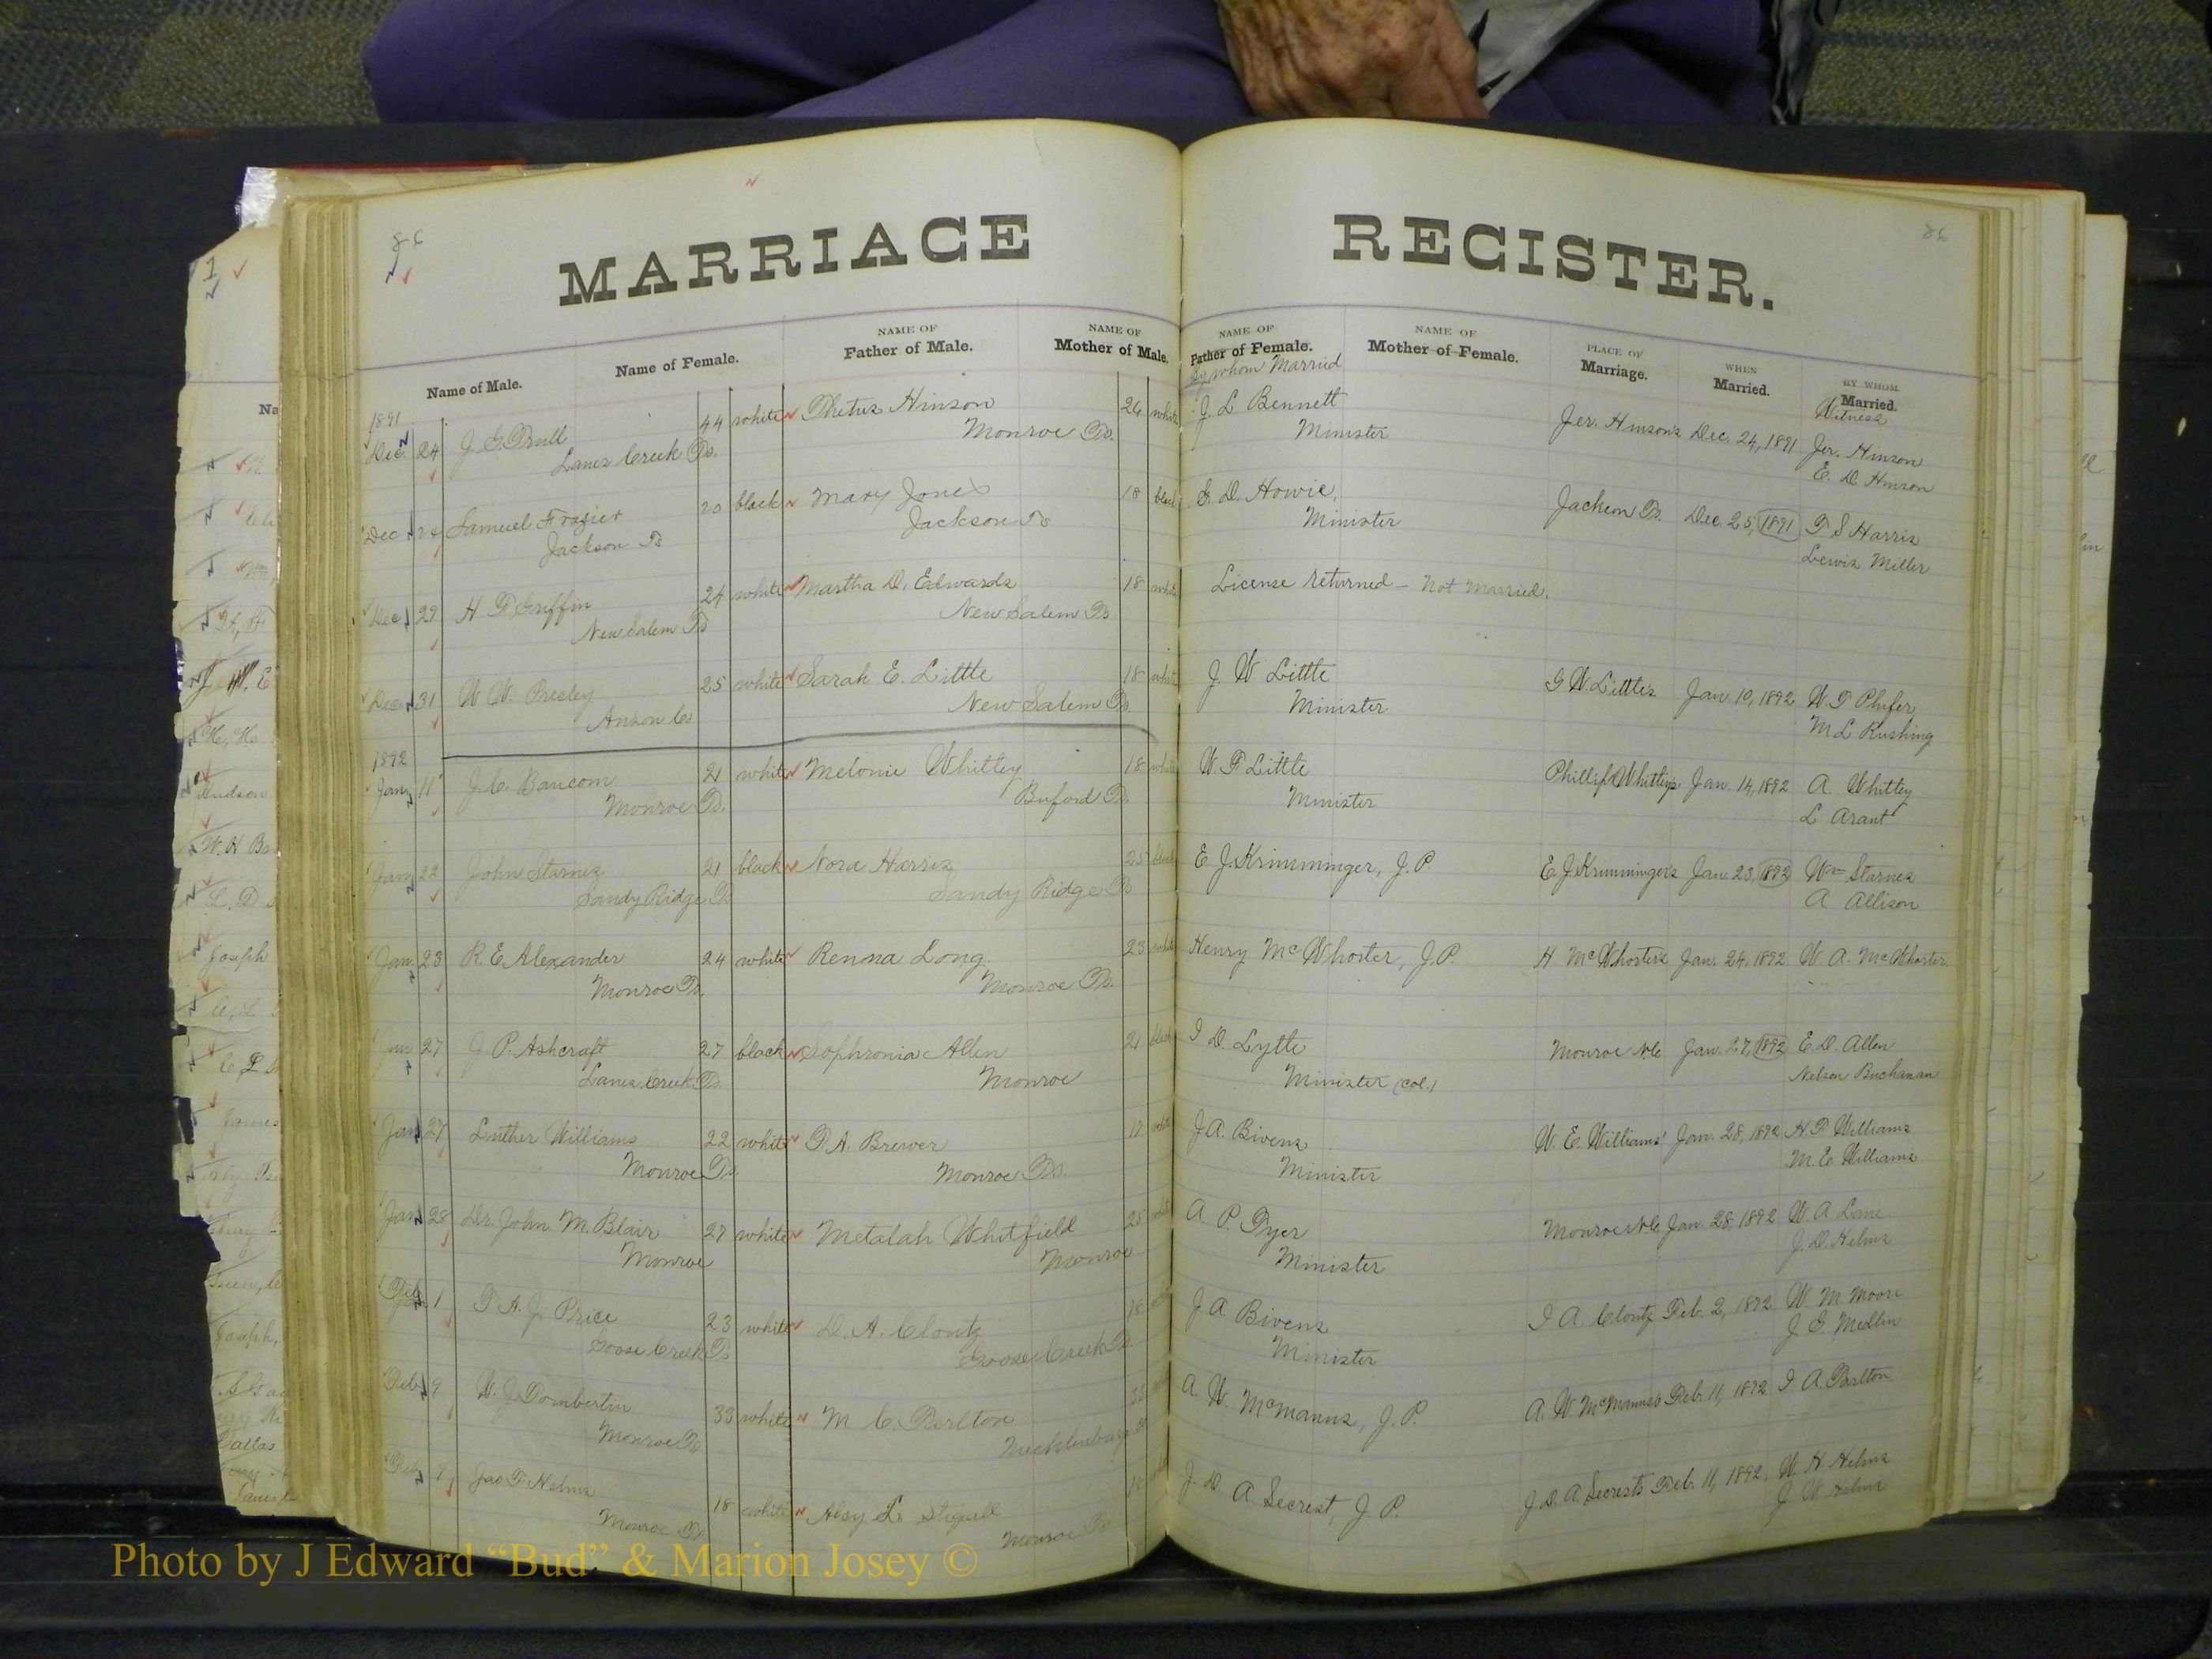 86
MARRIAGE REGISTER.
86
Name of Male.
Name of Female.
NAME OF
Father of Male.
NAME OF
Mother of Male.
NAME OF
Father of Female.
By whom Married
NAME OF
Mother of Female.
PLACE OF
Marriage.
WHEN
Married.
BY WHOM
Married.
Witness
1891
Dec. 24 J. G. Trull 44 white Thetus Hinson 26 white J. L. Bennett Jer. Hinson's Dec. 24, 1891 Jer. Hinson
Lanes Creek Ts. Monroe Ts. Minister E. D. Hinson
Dec 24 Samuel Frazier 20 black Mary Jones 18 black G. D. Howie, Jackson Ts. Dec. 25, 1891 T S Harris
Jackson Ts Jackson Ts Minister Lewis Miller
Dec 29 H. T. Griffin 24 white Martha D. Edwards 18 white License returned - Not Married.
New Salem Ts New Salem Ts
Dec 31 W. W. Presley 25 white Sarah E. Little 18 white J. W Little G W. Little's Jan. 10, 1892 W. T Phifer
Anson Co New Salem Ts. Minister M L Rushing
1892
Jan 11 J. C. Baucom 21 white Melonie Whitley 18 white W. F Little Phillip Whitley's Jan. 14, 1892 A. Whitley
Monroe Ts. Buford Ts. Minister L Arant
Jan 22 John Starnes 21 black Nora Harris 25 black E J. Krimminger, J. P. E. J. Krimminger's Jan 23, 1892 Wm Starnes
Sandy Ridge Ts Sandy Ridge Ts A Allison
Jan 23 R. E. Alexander 24 white Renna Long 23 white Henry McWhorter, J. P. H McWhorter's Jan. 24, 1892 W. A. McWhorter
Monroe Ts. Monroe Ts.
Jan 27 J. P. Ashcraft 27 black Sophronia Allen 21 black I D. Lytle Monroe N.C. Jan. 27, 1892 E. D. Allen
Lanes Creek Ts. Monroe Minister (col.) Nelson Buchanan
Jan 27 Luther Williams 22 white T. A. Brewer 17 white J A. Bivens W. E. Williams' Jan. 28, 1892 H T Williams
Monroe Ts. Monroe Ts. Minister M. E. Williams
Jan 28 Dr. John M. Blair 27 white Metalah Whitfield A P. Tyer Monroe N.C. Jan. 28, 1892 W. A Lane
Monroe Monroe Minister J. D. Helms
Feb 1 T. A. J. Price 23 white D. A. Clontz 18 J A Bivens I A. Clontz Feb. 2, 1892 W. M. Moore
Goose Creek Ts Goose Creek Ts. Minister J G Medlin
Feb 9 W. J. Tomberlin 33 white M C. Parlton A. W. McManus, J. P. A. W. McManus's Feb. 11, 1892 I A. Parlton
Monroe Ts Mecklenburg Co
Feb 9 Jas T Helms 18 white Alsy L. Stegall 18 J. D A Secrest, J P. J. D. A. Secrest's Feb. 11, 1892 W. H. Helms
Monroe Ts. Monroe Ts J W Helms
Photo by J Edward “Bud” & Marion Josey ©